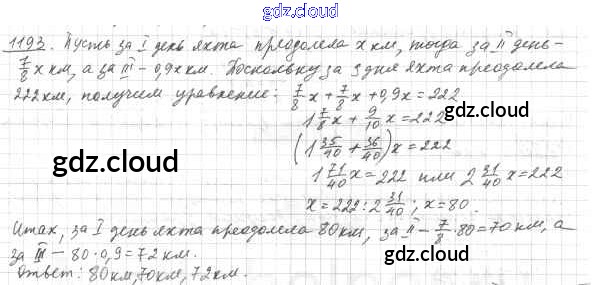 gdz.cloud
1193. Пусть за I день яхта преодолела x км, тогда за II день –
7/8 x км, а за III – 0,9x км. Поскольку за 3 дня яхта преодолела
222 км, получим уравнение: 7/8 x + 7/8 x + 0,9x = 222
1 7/8 x + 9/10 x = 222
gdz.cloud
(1 35/40 + 36/40) x = 222
gdz.cloud
1 71/40 x = 222 или 2 31/40 x = 222
x = 222 : 2 31/40 ; x = 80.
Итак, за I день яхта преодолела 80 км, за II – 7/8 · 80 = 70 км, а
за III – 80 · 0,9 = 72 км.
gdz.cloud
gdz.cloud
Ответ: 80 км, 70 км, 72 км.